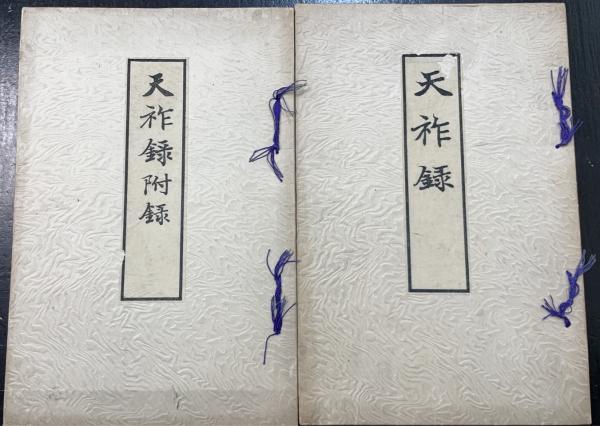 天祚録
天祚録附録